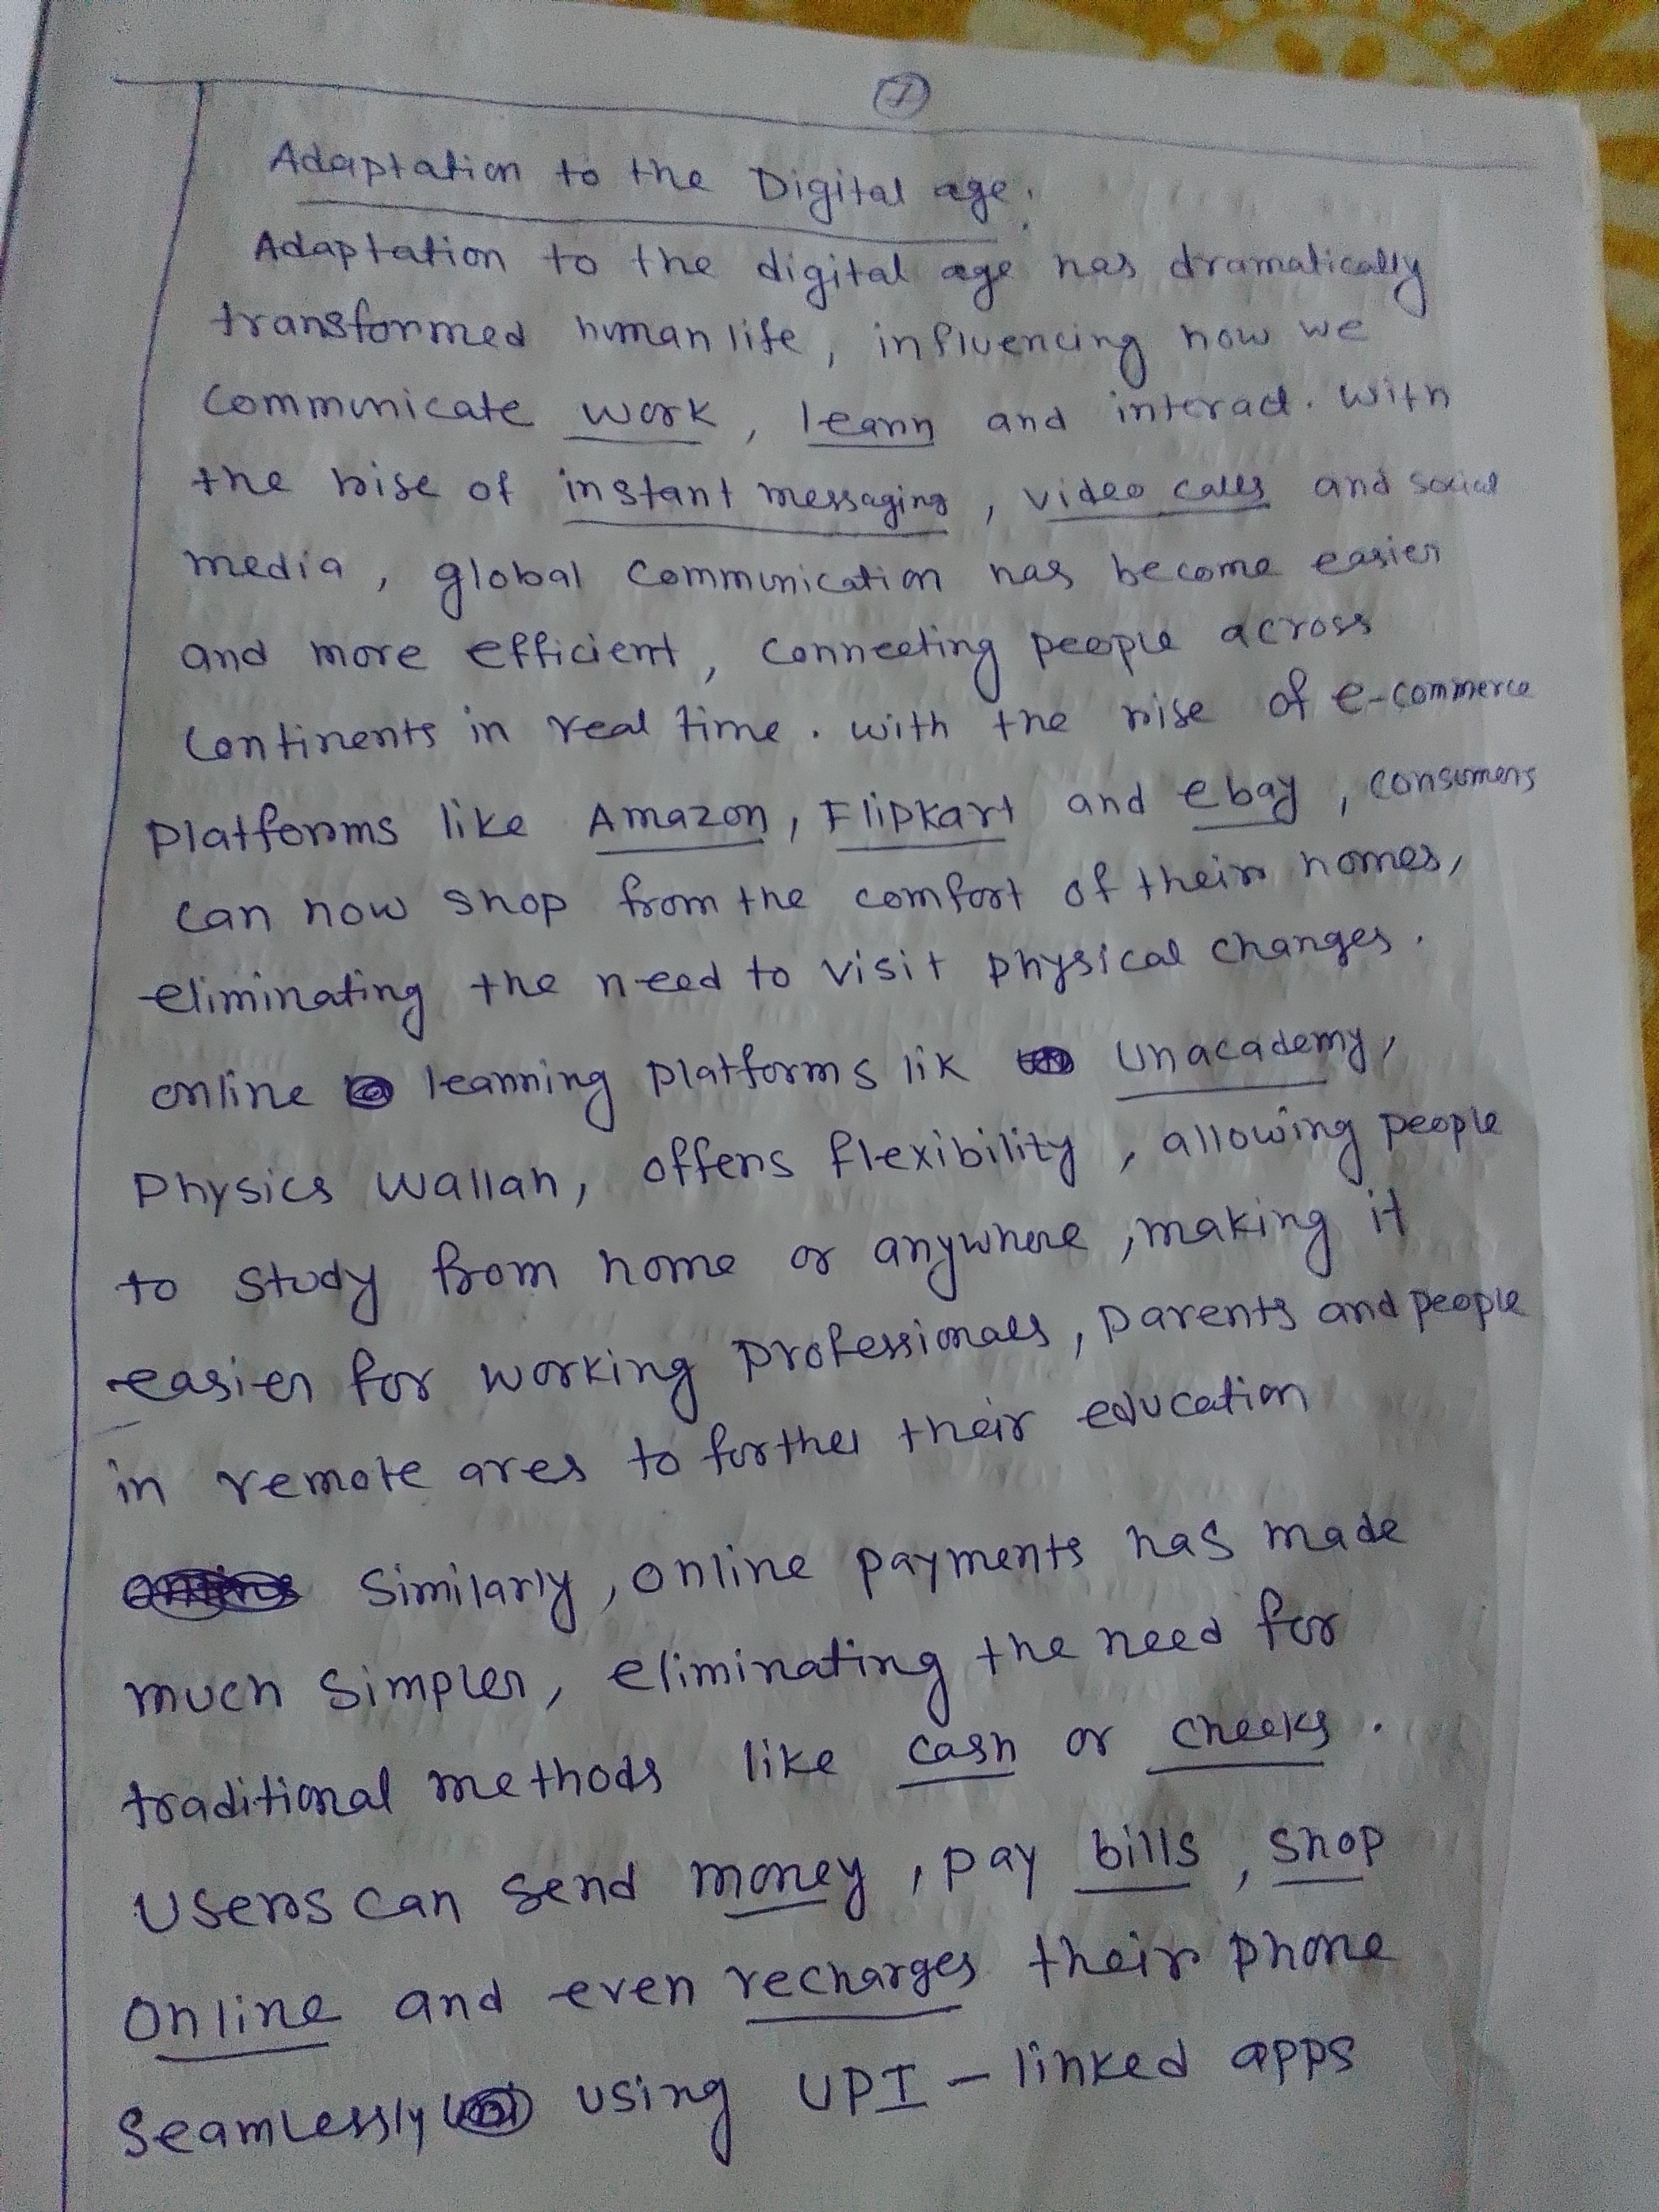 1
Adaptation to the Digital age.
Adaptation to the digital age has dramatically
transformed human life, influencing how we
communicate work, learn and interact. With
the rise of instant messaging, video calls and social
media, global communication has become easier
and more efficient, connecting people across
continents in real time. with the rise of e-commerce
platforms like Amazon, Flipkart and ebay, consumers
can now shop from the comfort of their homes,
eliminating the need to visit physical changes.
online learning platforms lik Unacademy,
Physics Wallah, offers flexibility, allowing people
to study from home or anywhere, making it
easier for working professionals, parents and people
in remote ares to further their education
Similarly, online payments has made
much simpler, eliminating the need for
traditional methods like cash or checks.
Users can send money, pay bills, shop
online and even recharges their phone
seamlessly using UPI - linked apps